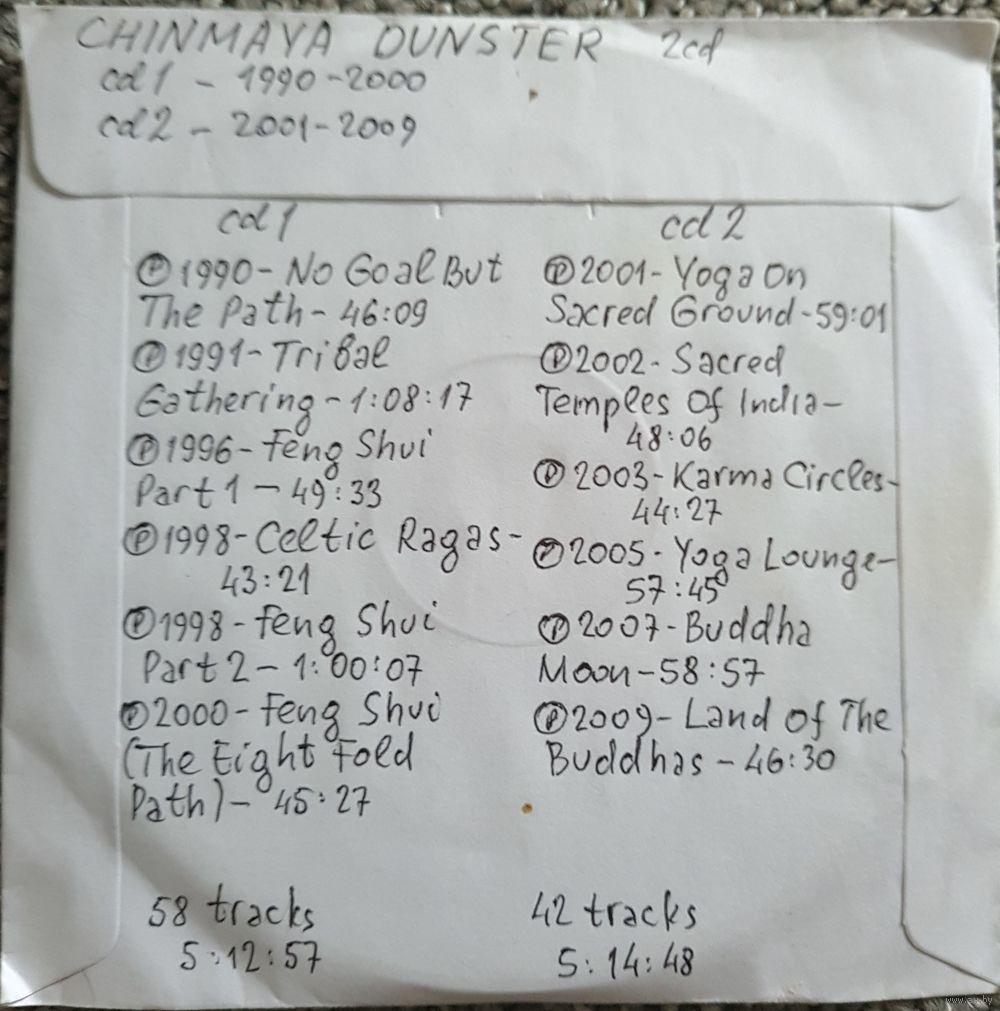 CHINMAYA DUNSTER 2cd
cd1 - 1990-2000
cd2 - 2001-2009
cd1
℗1990- No Goal But
The Path- 46:09
℗1991- Tribal
Gathering - 1:08:17
℗1996- Feng Shui
Part 1 - 49:33
℗1998- Celtic Ragas-
43:21
℗1998- Feng Shui
Part 2 - 1:00:07
℗2000- Feng Shui
(The Eight Fold
Path)- 45:27
58 tracks
5:12:57
cd2
℗2001- Yoga On
Sacred Ground-59:01
℗2002- Sacred
Temples Of India-
48:06
℗2003- Karma Circles-
44:27
℗2005- Yoga Lounge-
57:45
℗2007- Buddha
Moon-58:57
℗2009- Land Of The
Buddhas - 46:30
42 tracks
5:14:48
www.ay.by